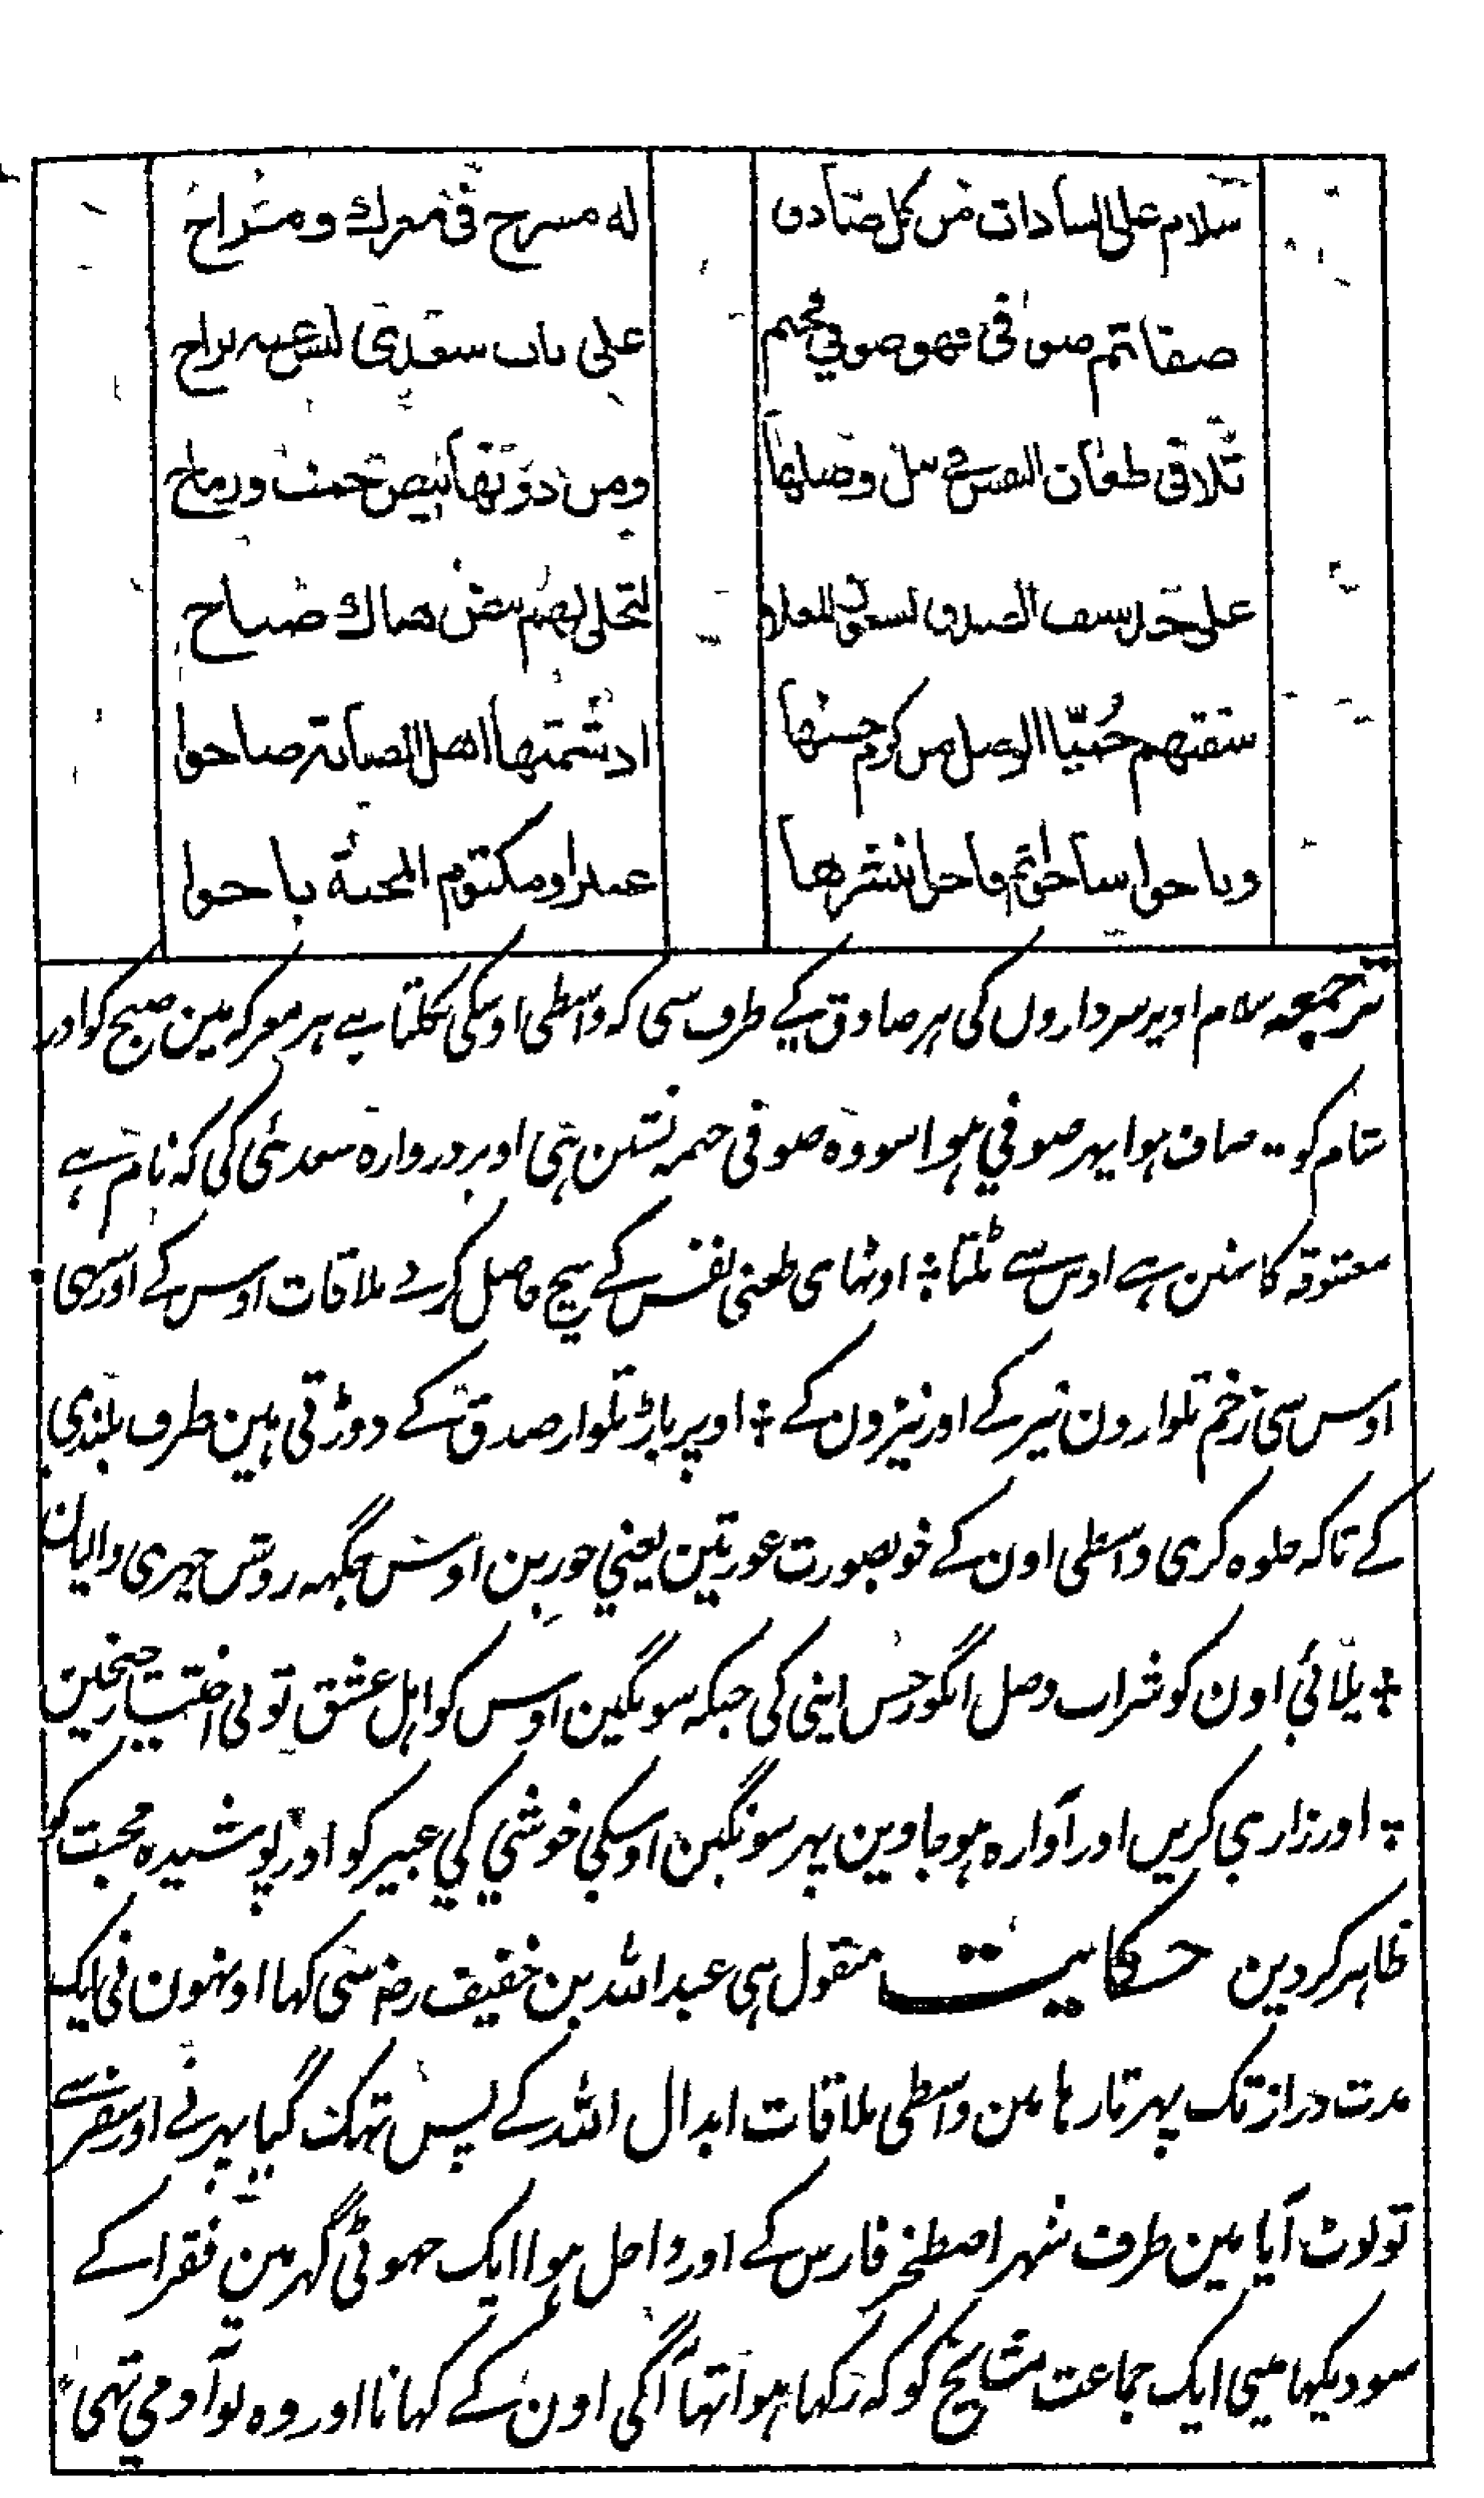 سلام علی السادات من کل صادق له مسرح فی معرك و مراح
صفا ثم صوفی فهو صوفی مخیم علی باب سعدی لیس عنه براح
تلاقی طعان النفس فی نیل وصلها ومن دونها بیض حمت ورماح
علی حد سیف الصدق یسعی للعلا لتجلی لهم بیض هناك صباح
سقتهم حُمیّا الوصل من کرم حسنها اذ شمتها اهل الصبابة صاحوا
وناحوا وساحوا ثم فاحوا بنشرها عبیرا ومکتوم المحبة باحوا
ترجمہ سلام اوپر سرداروں کی ہر صادق کے طرف سی کہ واسطی اوسکی نکلتا ہے ہر معرکہ مین صبح کو اور
شام کو .. صاف ہوا پہر صوفي ہوا سو وہ صوفی خیمہ نشین ہی اوپر دروازہ سعدیٰ کی کہ نام ہے
معشوقہ کا نہین ہے اوس سے ٹلنا ؞ اوٹہاتی طعنی نفس کے بیچ حاصل کرنے ملاقات اوس کے اور سوی
اوس سی زخم تلوارون تیر کے اور نیزون کے ؞ اوپر باڑ تلوار صدق کے دوڑتی ہین طرف بلندی
کے تاکہ جلوہ کری واسطی اون کے خوبصورت عورتین یعنی حورین اوس جگہہ روشن چہری والیان
؞ پلائی اون کو شراب وصل انگور حسن اپنی کی جبکہ سونگین اوس کو اہل عشق تو بی اختیار چیخین
؞ اور زاری کریں اور آوارہ ہو جاوین پہر سونگین اوسکی خوشی کی عبیر کو اور پوشیدہ محبت کو
ظاہر کر دین حکایت منقول ہی عبداللہ بن خفیف رضہ سی کہا اونہون نی ایک
مدت دراز تک پہرتا رہا مین واسطی ملاقات ابدال اللہ کے پس تہک گیا پہرنے اور سفر سے
تو لوٹ آیا مین طرف شہر اصطخر فارس کے اور داخل ہوا ایک چہوٹی گہر مین فقرا کے
سو دیکہا مینی ایک جماعت مشایخ کو کہ رکہا ہوا تہا آگی اون کے کہانا اور وہ نو آدمی تہی